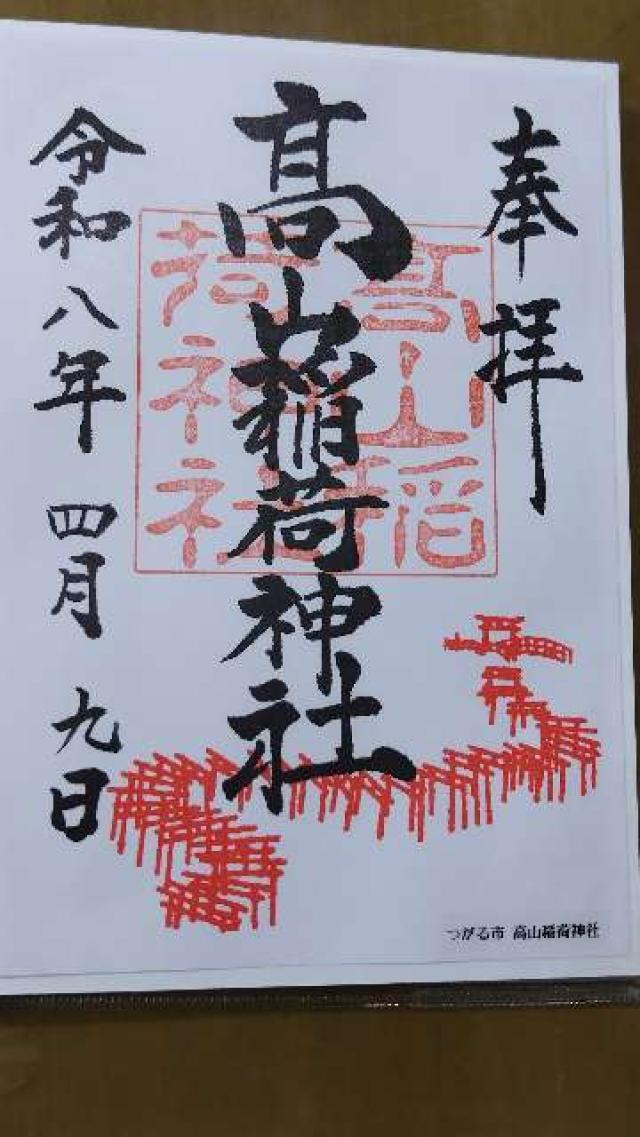 奉拝
髙山稲荷神社
高山稲
荷神社
令和八年 四月 九日
つがる市 高山稲荷神社